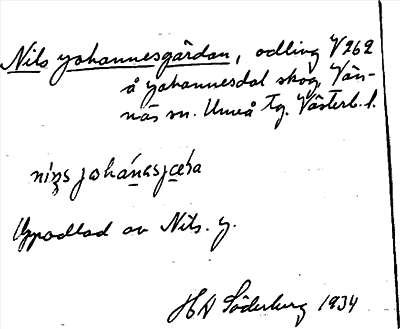 Nils Johannesgärdan, odling V 262
å Johannesdal skog, Vän-
näs sn. Umeå Tg. Västerb. l.
Uppodlad av Nils. J.
H A Söderberg 1934